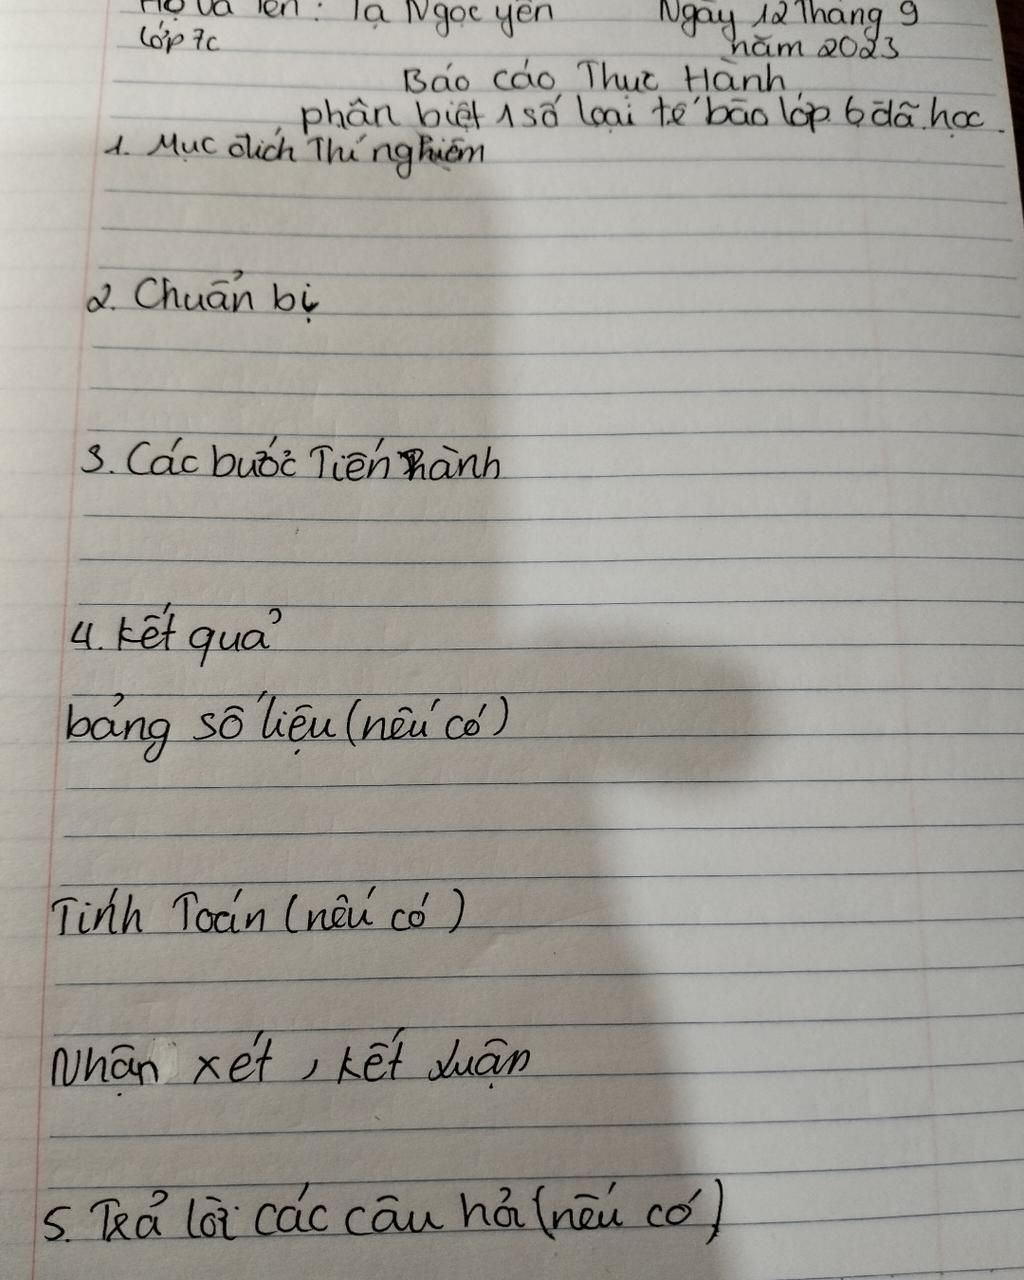 Họ và Tên: Tạ Ngọc yên Ngày 12 Tháng 9
Lớp 7c năm 2023
Báo cáo Thực Hành
phân biệt 1 số loại tế bào lớp 6 đã học.
1. Mục đích Thí nghiệm
2. Chuẩn bị
3. Các bước Tiến hành
4. kết quả
bảng số liệu (nếu có)
Tính Toán (nếu có)
Nhận xét, kết luận
5. Trả lời các câu hỏi (nếu có)